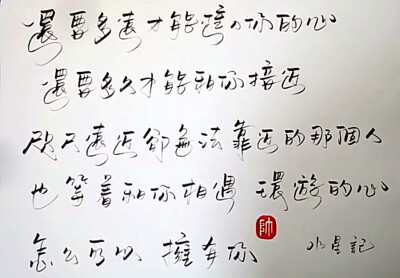 還要多遠才能進入你的心
還要多久才能和你接近
咫尺遠近卻無法靠近的那個人
也等着和你相遇 環遊的心
怎么可以 擁有你 帥 水星記